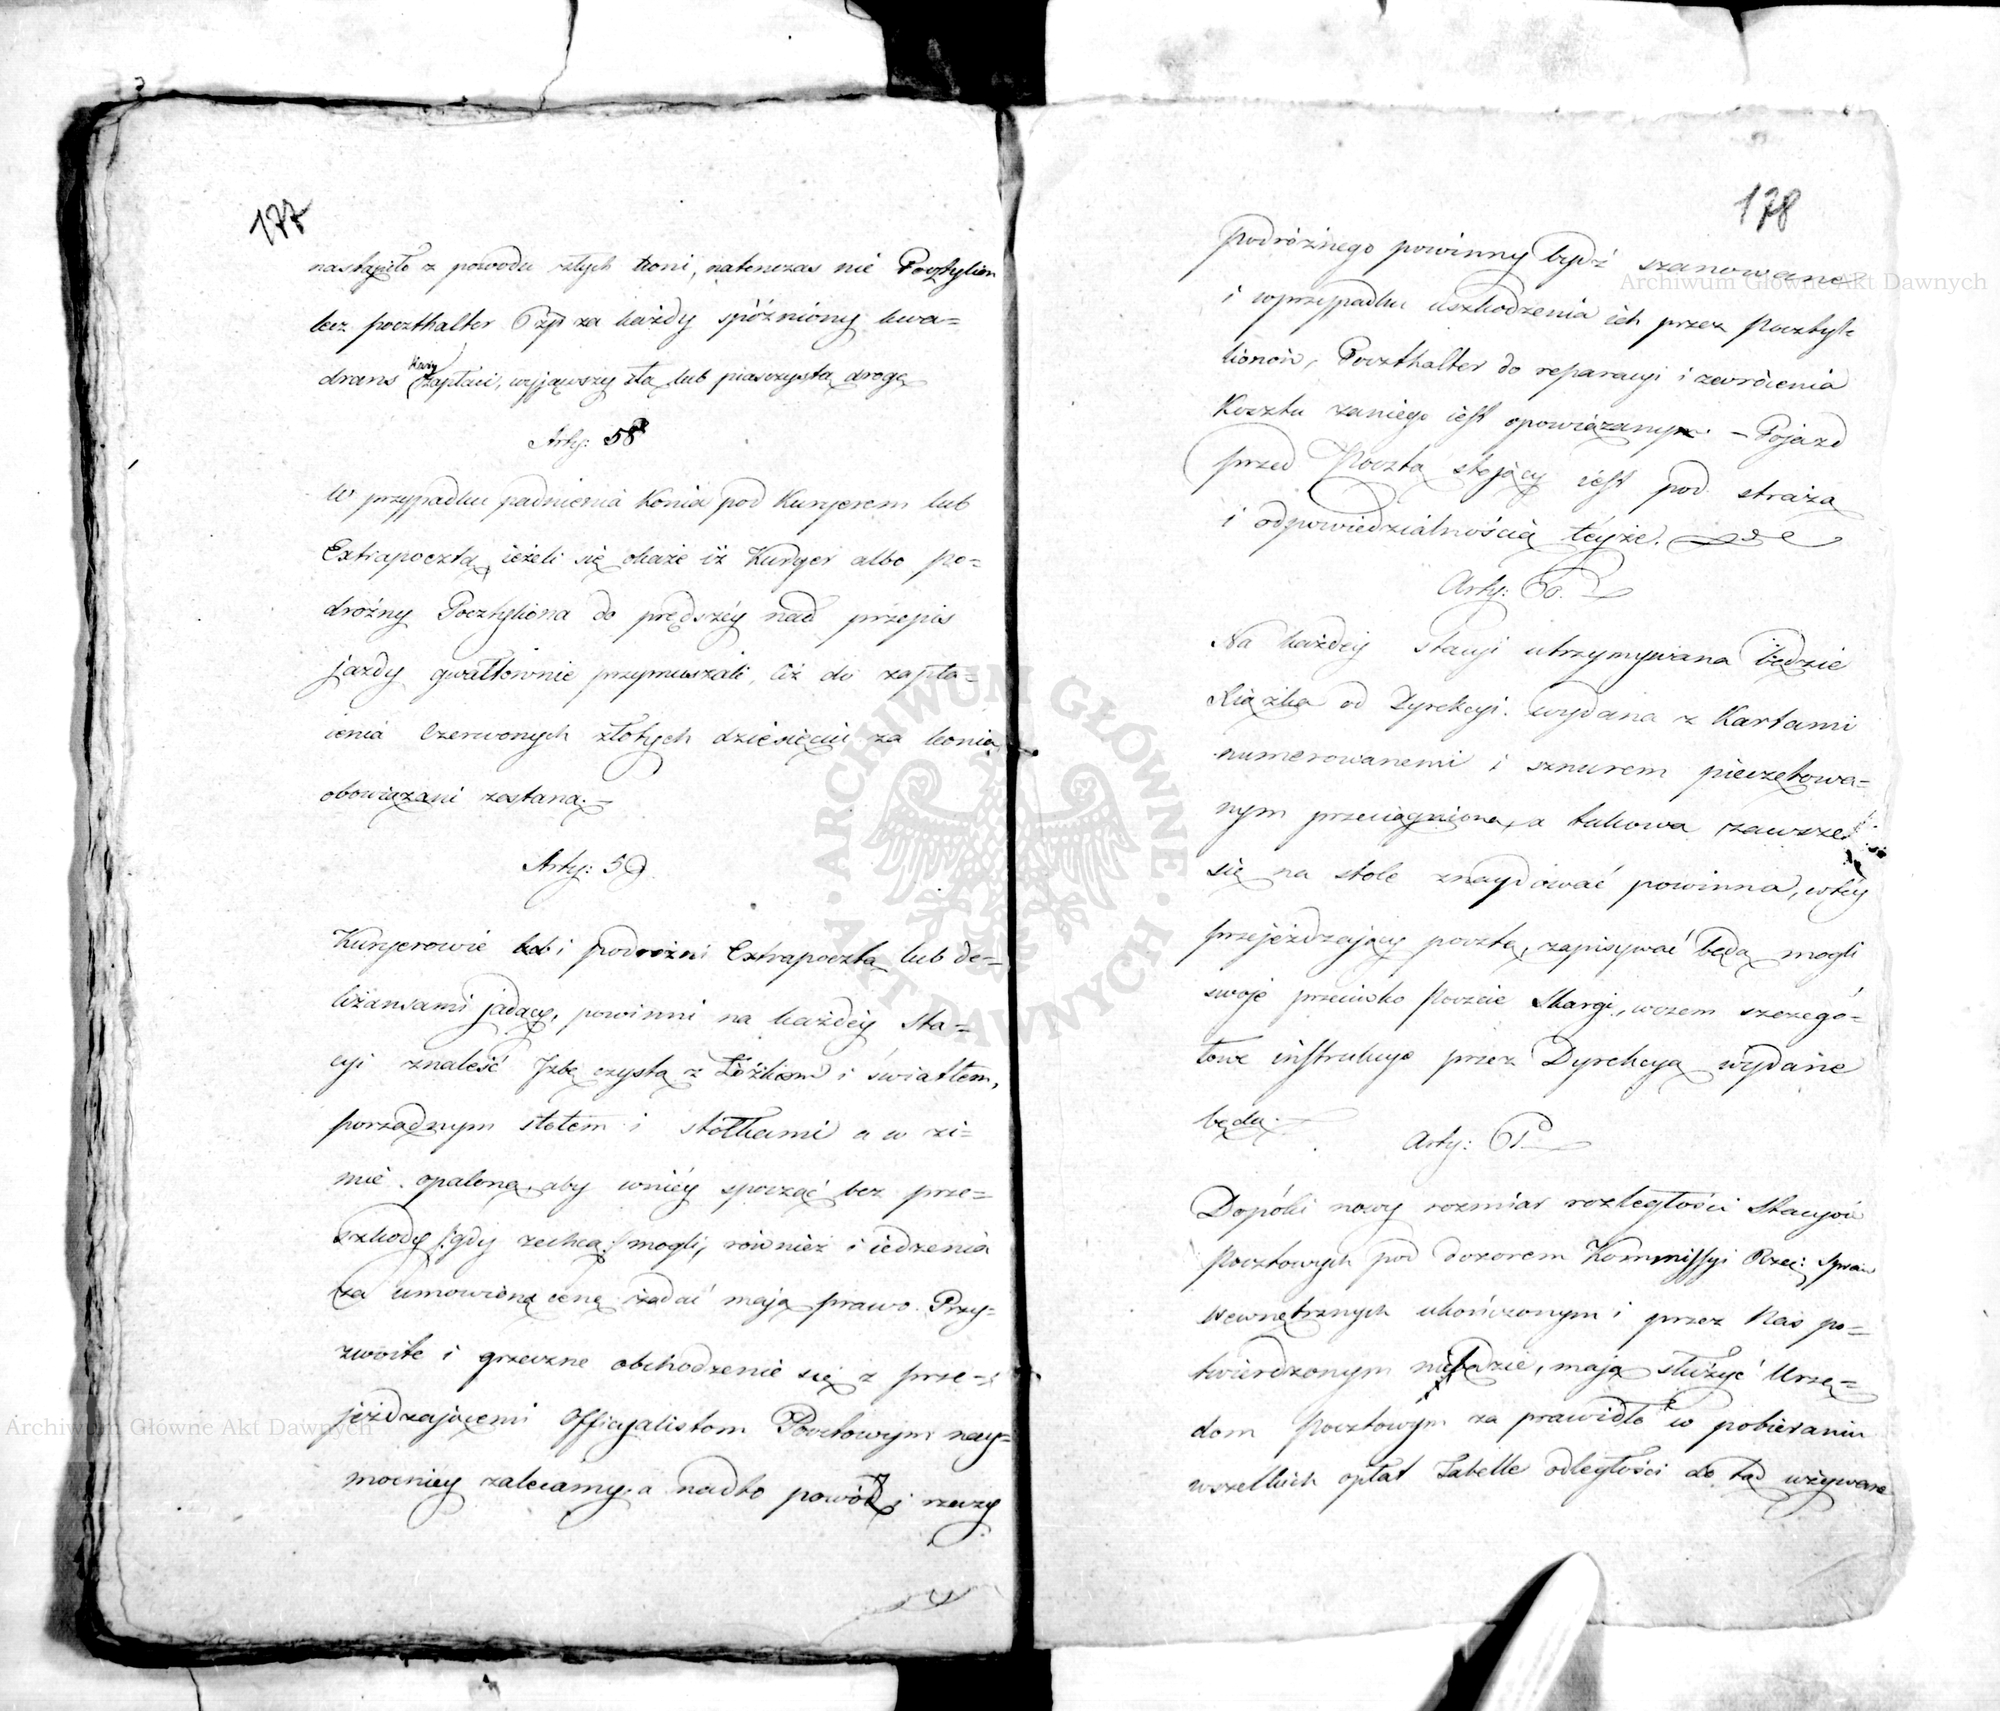 177
nastąpiło z powodu złych koni, natenczas nie Pocztylion
lecz poczthalter za każdy spóźniony kwa=
drans karę zapłaci, wyjąwszy złą lub piasczystą drogę
Arty: 58
W przypadku padnienia Konia pod Kuryerem lub
Extrapocztą, ieżeli się okaże iż Kuryer albo po=
dróżny Pocztyliona do prędszéy nad przepis
jazdy gwałtownie przymuszali, iż do zapła=
cenia czerwonych złotych dziesięciu za konia
obowiązani zostaną.
Arty: 59
Kuryerowie lub i podróżni Extrapocztą lub de=
liżansami jadący, powinni na każdéy sta=
cyi znaleść Jzbę czystą z łóżkiem i światłem,
porządnym stołem i stołkami a w zi=
mie opaloną, aby wniéy spocząć bez prze=
szkody /:gdy zechcą:/ mogli, również i iedzenia
za umowioną cenę żądać mają prawo. Przy=
zwoite i grzeczne obchodzenie się z prze=
jeżdżającemi Officyalistom Pocztowym nay=
mocniey zalecamy, a nadto powód i rzeczy
178
podróżnego powinny bydź szanowane
i wprzypadku uszkodzenia ich przez Poczty=
lionów, Poczthalter do reparacyi i zwrócenia
Kosztu zaniego iest opowiązanym. – Pojazd
przed Pocztą stojący iest pod strażą
i odpowiedzialnością téyże.
Arty: 60.
Na każdéy stacyi utrzymywana będzie
Xiążka od Dyrekcyi wydana z Kartami
numerowanemi i sznurem pieczętowa=
nym przeciągniona, a takowa zawsze
się na stole znaydować powinna, w téy
przejeżdżający pocztą, zapisywać będą mogli
swoje przeciwko Poczcie Skargi, wczem szczegó=
łowe instrukcye przez Dyrekcyą wydane
będą.
Arty: 61.
Dopóki nowy rozmiar rozległości Stacyów
Pocztowych pod dozorem Kommissyi Rzec: Spraw
Wewnętrznych ukończonym i przez Nas po=
twierdzonym niebędzie, mają służyć Urzę=
dom Pocztowym za prawidło w pobieraniu
wszelkich opłat Tabelle odległości do tąd używane
Archiwum Główne Akt Dawnych
Archiwum Główne Akt Dawnych
ARCHIWUM GŁÓWNE AKT DAWNYCH